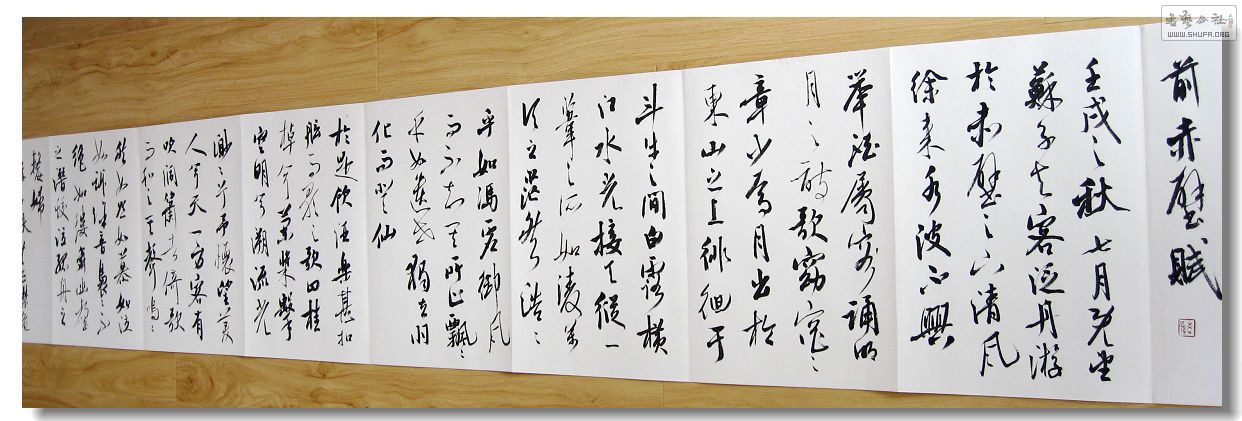 书艺公社
WWW.SHUFA.ORG
前赤壁賦
壬戌之秋七月既望
蘇子与客泛舟游
於赤壁之下清風
徐来水波不興
舉酒屬客誦明
月之詩歌窈窕之
章少焉月出於
東山之上徘徊于
斗牛之間白露横
江水光接天縱一
葦之所如凌万
頃之茫然浩々
乎如馮虚御風
而不知其所止飄々
乎如遺世獨立羽
化而登仙
於是飲酒樂甚扣
舷而歌之歌曰桂
棹兮蘭槳擊
空明兮溯流光
渺々兮予懷望美
人兮天一方客有
吹洞簫者倚歌
而和之其聲嗚々
然如怨如慕如泣
如訴餘音裊々不
絕如縷舞幽壑
之潛蛟泣孤舟之
嫠婦